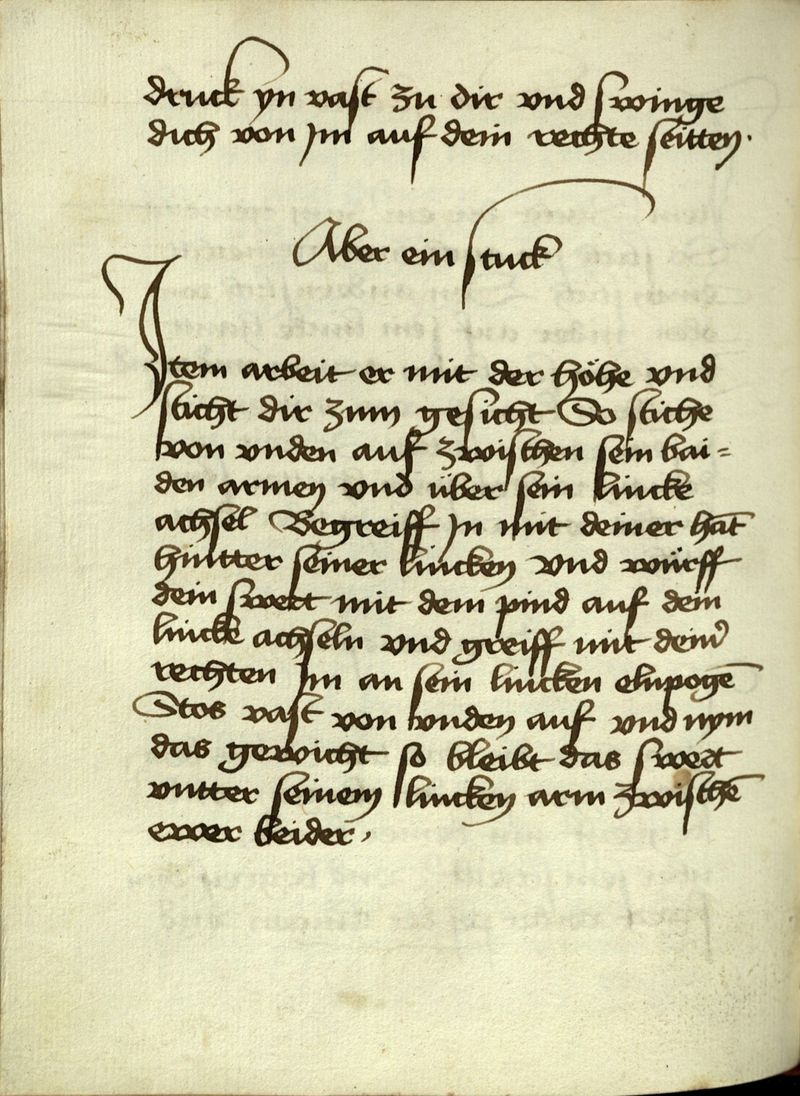 druck yn vast zu dir vnd swinge
dich von Jm auf dein rechte seitten.
Aber ein stuck
Item arbeit er mit der höhe vnd
sticht dir zum gesicht So stiche
von vnden auf zwischen sein bai=
den armen vnd über sein lincke
achsel Begreiff Jn mit deiner hāt
hintter seiner lincken vnd würff
dein swert mit dem pind auf dein
lincke achseln vnd greiff mit dein̉
rechten Jm an sein lincken elnpogē
Stos vast von vnden auf vnd nym
das gewicht so bleibt das swert
vntter seinem lincken arm zwischē
ewer beider.